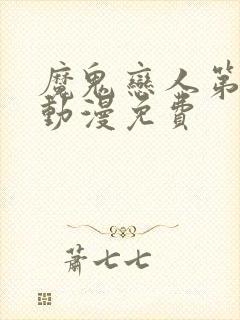 魔鬼戀人第
動漫免費
蕭七七